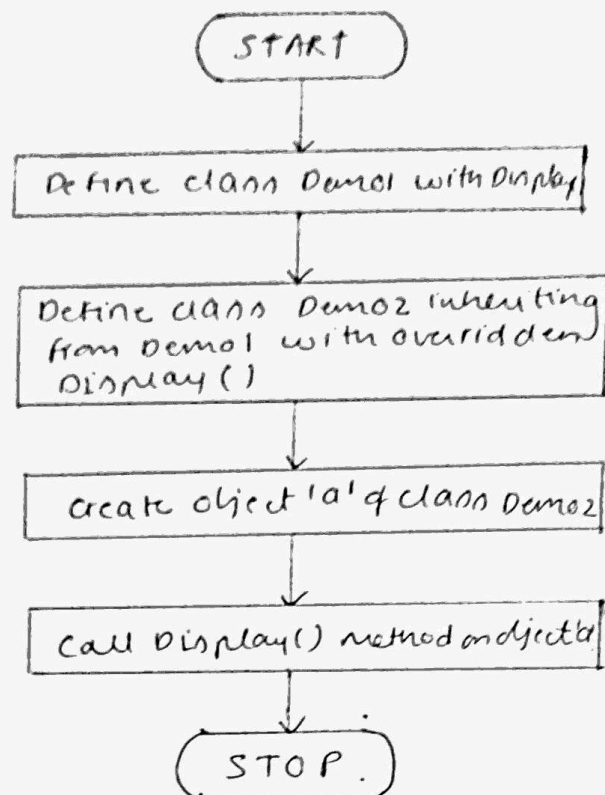 START
Define class Demo1 with Display
Define class Demo2 inheriting
from Demo1 with overidden
Display()
create object 'a' of class Demo2
call Display() method on object 'a
STOP.